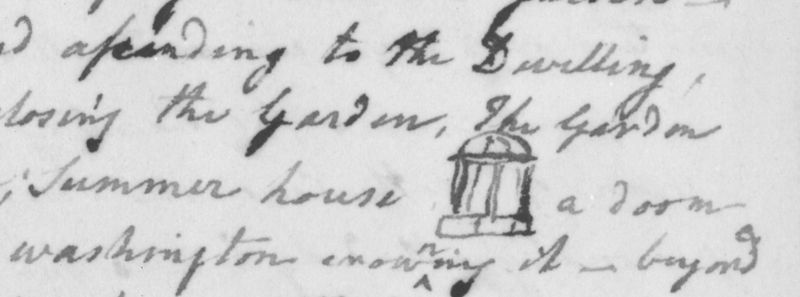 ascending to the Dwelling,
closing the Garden, The Garden
Summer house a doom
washington crowning it – beyond